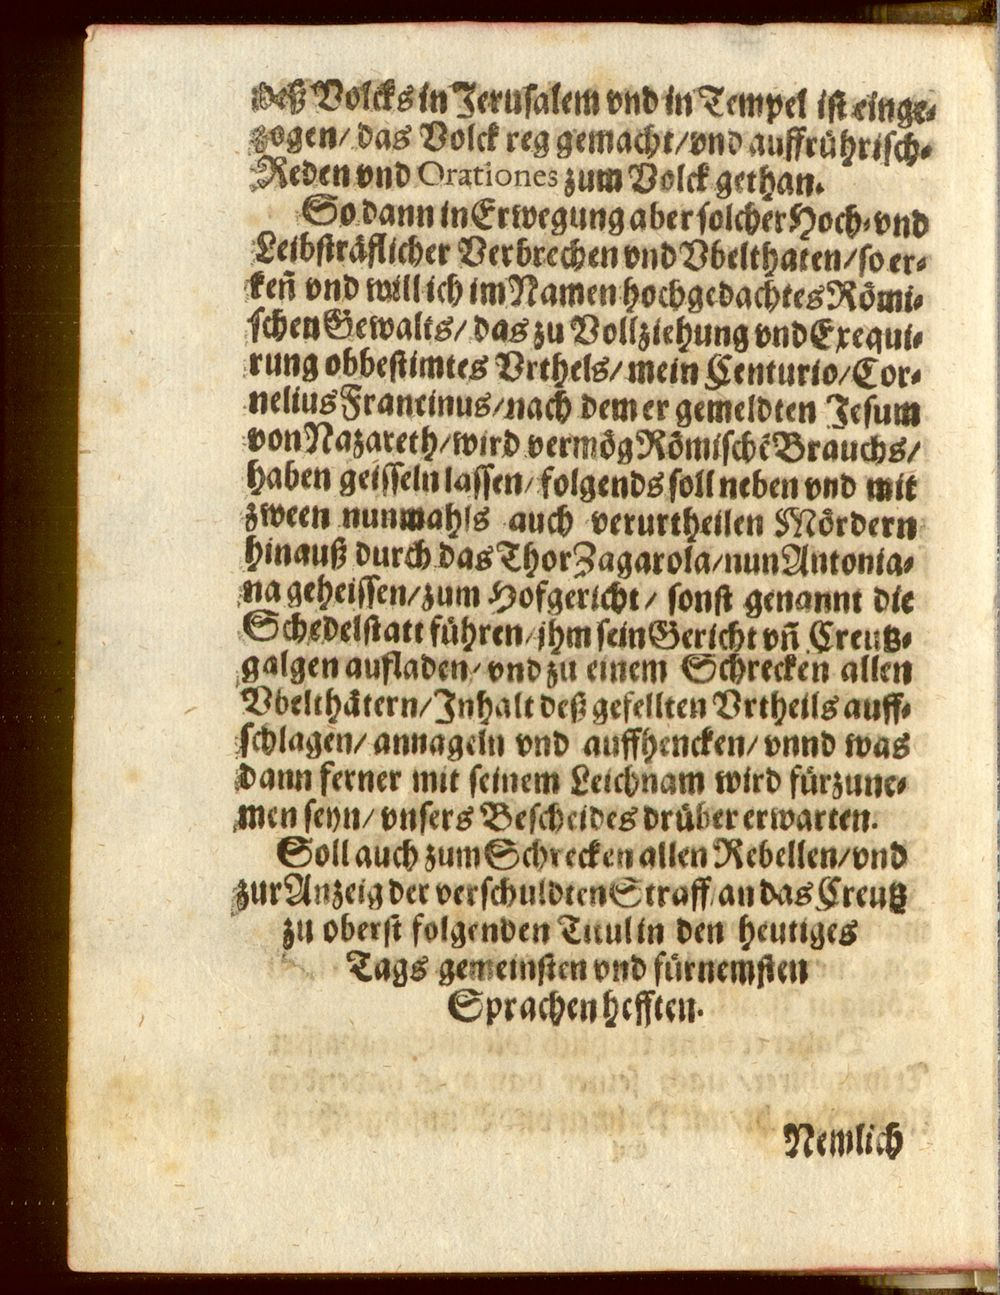 deß Volcks in Jerusalem vnd in Tempel ist einge-
zogen/ das Volck reg gemacht/ vnd auffrührisch-
Reden vnd Orationes zum Volck gethan.
So dann in Erwegung aber solcher Hoch- vnd
Leibsträflicher Verbrechen vnd Vbelthaten/ so er-
keñ vnd will ich im Namen hochgedachtes Römi-
schen Gewalts/ das zu Vollziehung vnd Exequi-
rung obbestimtes Vrthels/ mein Centurio/ Cor-
nelius Francinus/ nach dem er gemeldten Jesum
von Nazareth/ wird vermög Römischẽ Brauchs/
haben geisseln lassen/ folgends soll neben vnd mit
zween nunmahls auch verurtheilen Mördern
hinauß durch das Thor Zagarola/ nun Antonia-
na geheissen/ zum Hofgericht/ sonst genannt die
Schedelstatt führen/ jhm sein Gericht vñ Creutz-
galgen aufladen/ vnd zu einem Schrecken allen
Vbelthätern/ Inhalt deß gefellten Vrtheils auff-
schlagen/ annageln vnd auffhencken/ vnnd was
dann ferner mit seinem Leichnam wird fürzune-
men seyn/ vnsers Bescheides drüber erwarten.
Soll auch zum Schrecken allen Rebellen/ vnd
zur Anzeig der verschuldten Straff/ an das Creutz
zu oberst folgenden Titul in den heutiges
Tags gemeinsten vnd fürnemsten
Sprachen hefften.
Nemlich